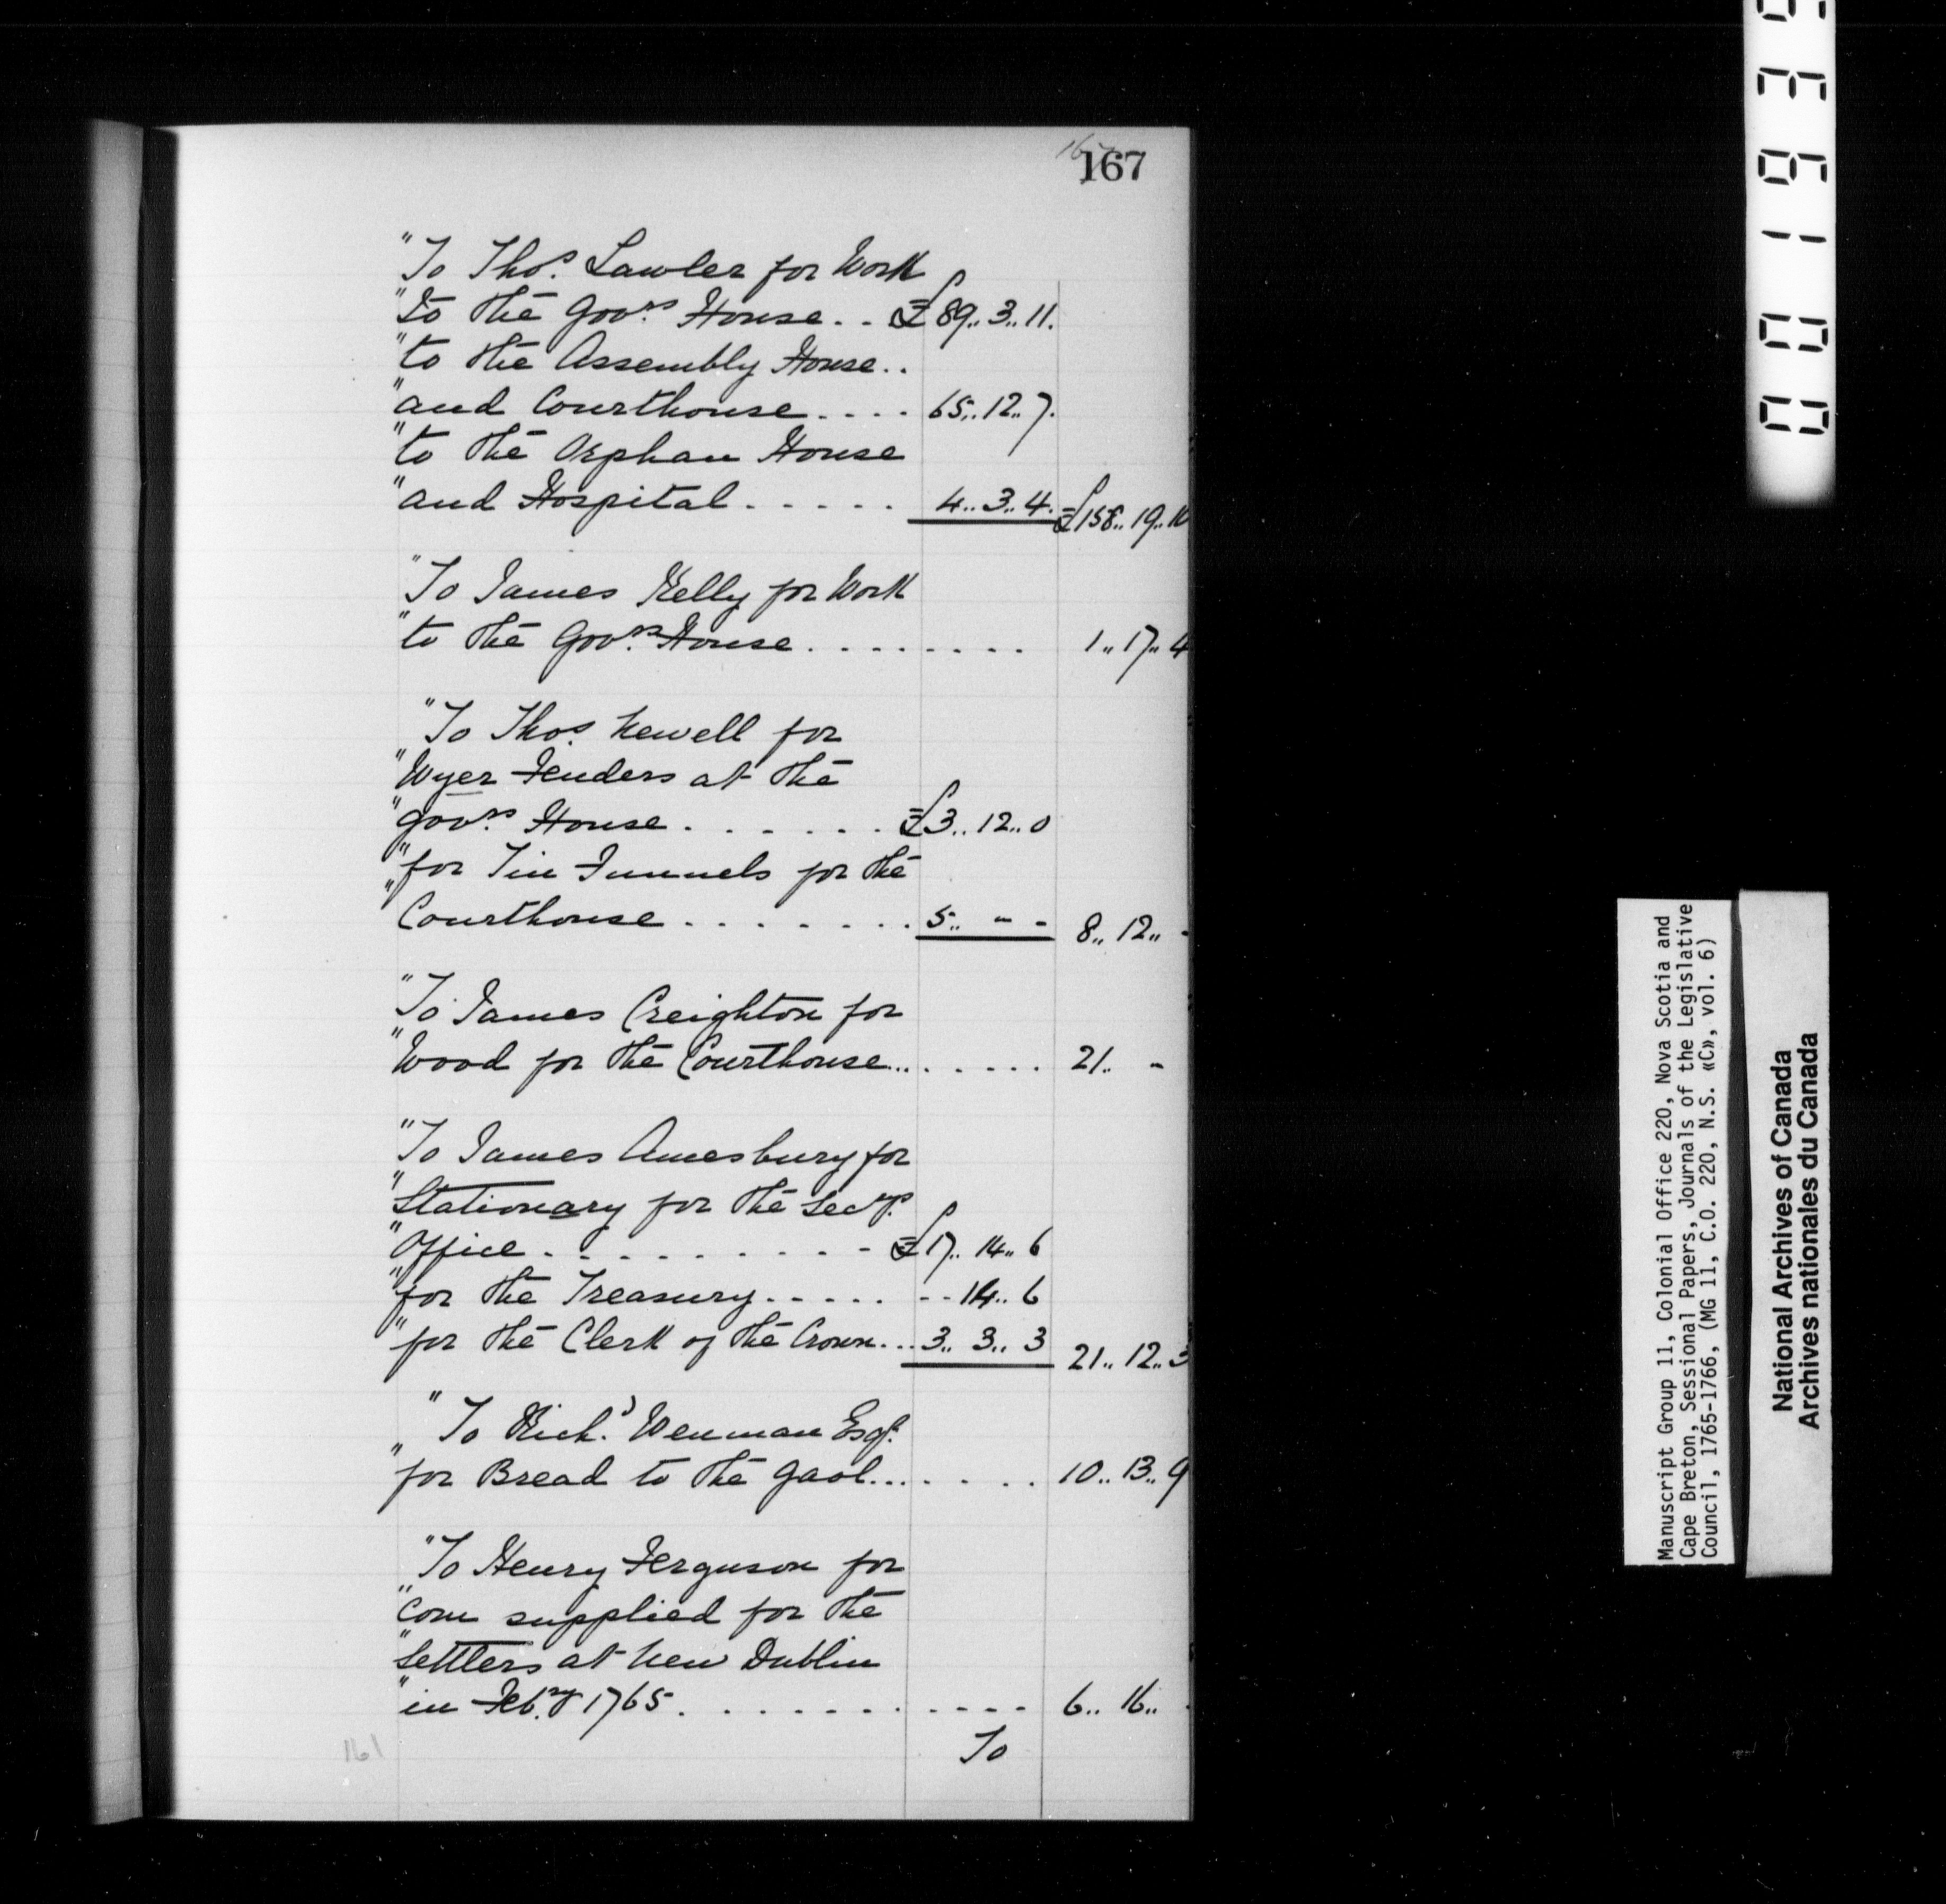 167
167
"To Thos. Lawler for Work
"to the Govrs. House . . £ 89.. 3.. 11.
"to the Assembly House . .
"and Courthouse . . . . 65.. 12.. 7.
"to the Orphan House
"and Hospital . . . . . 4.. 3.. 4. £158.. 19.. 10
"To James Kelly for Work
"to the Govrs. House . . . . . . . . 1.. 17.. 4
"To Thos. Newell for
"Wyer Fenders at the
"Govrs. House . . . . . . £3.. 12.. 0
"for Tin Funnels for the
"Courthouse . . . . . . . 5.. " - 8.. 12.. -
"To James Creighton for
"Wood for the Courthouse . . . . . . . . 21.. -
"To James Amesbury for
"Stationary for the Secys.
"Office . . . . . . . . . £17.. 14.. 6
"for the Treasury . . . . . - - 14.. 6
"for the Clerk of the Crown . . . 3.. 3.. 3 21.. 12.. 3
"To Richd. Wenman Esqr.
"for Bread to the Gaol . . . . . . . 10.. 13.. 9
"To Henry Ferguson for
"Corn supplied for the
"Settlers at New Dublin
"in Feb.ry 1765 . . . . . . . . . . 6.. 16.. -
To
161
Manuscript Group 11, Colonial Office 220, Nova Scotia and
Cape Breton, Sessional Papers, Journals of the Legislative
Council, 1765-1766, (MG 11, C.O. 220, N.S. «C», vol. 6)
National Archives of Canada
Archives nationales du Canada